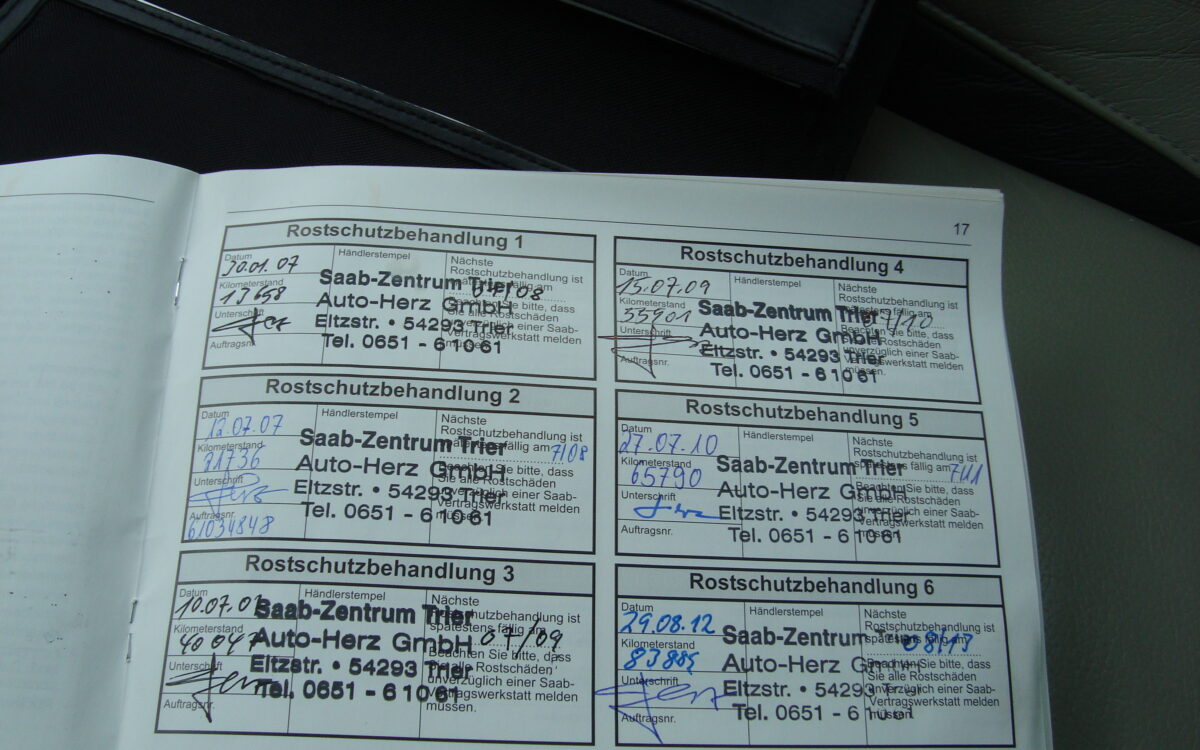 17
Rostschutzbehandlung 1
Datum
30.01.07
Händlerstempel
Kilometerstand
13658
Unterschrift
Auftragsnr.
Saab-Zentrum Trier
Auto-Herz GmbH
Eltzstr. • 54293 Trier
Tel. 0651 - 61061
Nächste
Rostschutzbehandlung ist
spätestens fällig am
Beachten Sie bitte, dass
Sie alle Rostschäden
unverzüglich einer Saab-
Vertragswerkstatt melden
müssen.
Rostschutzbehandlung 2
Datum
12.07.07
Händlerstempel
Kilometerstand
21736
Unterschrift
Auftragsnr.
61034848
Saab-Zentrum Trier
Auto-Herz GmbH
Eltzstr. • 54293 Trier
Tel. 0651 - 61061
Nächste
Rostschutzbehandlung ist
spätestens fällig am 7/08
Beachten Sie bitte, dass
Sie alle Rostschäden
unverzüglich einer Saab-
Vertragswerkstatt melden
müssen.
Rostschutzbehandlung 3
Datum
10.07.
Kilometerstand
40047
Unterschrift
Auftragsnr.
Saab-Zentrum Trier
Auto-Herz GmbH
Eltzstr. • 54293 Trier
Tel. 0651 - 61061
Nächste
Rostschutzbehandlung ist
spätestens fällig am
07/09
Beachten Sie bitte, dass
Sie alle Rostschäden
unverzüglich einer Saab-
Vertragswerkstatt melden
müssen.
Rostschutzbehandlung 4
Datum
15.07.09
Händlerstempel
Kilometerstand
55901
Unterschrift
Auftragsnr.
Saab-Zentrum Trier
Auto-Herz GmbH
Eltzstr. • 54293 Trier
Tel. 0651 - 61061
Nächste
Rostschutzbehandlung ist
spätestens fällig am
7/10
Beachten Sie bitte, dass
Sie alle Rostschäden
unverzüglich einer Saab-
Vertragswerkstatt melden
müssen.
Rostschutzbehandlung 5
Datum
27.07.10
Händlerstempel
Kilometerstand
65790
Unterschrift
Auftragsnr.
Saab-Zentrum Trier
Auto-Herz GmbH
Eltzstr. • 54293 Trier
Tel. 0651 - 61061
Nächste
Rostschutzbehandlung ist
spätestens fällig am 7/11
Beachten Sie bitte, dass
Sie alle Rostschäden
unverzüglich einer Saab-
Vertragswerkstatt melden
müssen.
Rostschutzbehandlung 6
Datum
29.08.12
Händlerstempel
Kilometerstand
83885
Unterschrift
Auftragsnr.
Saab-Zentrum Trier
Auto-Herz GmbH
Eltzstr. • 54293 Trier
Tel. 0651 - 61061
Nächste
Rostschutzbehandlung ist
spätestens fällig am
08/13
Beachten Sie bitte, dass
Sie alle Rostschäden
unverzüglich einer Saab-
Vertragswerkstatt melden
müssen.